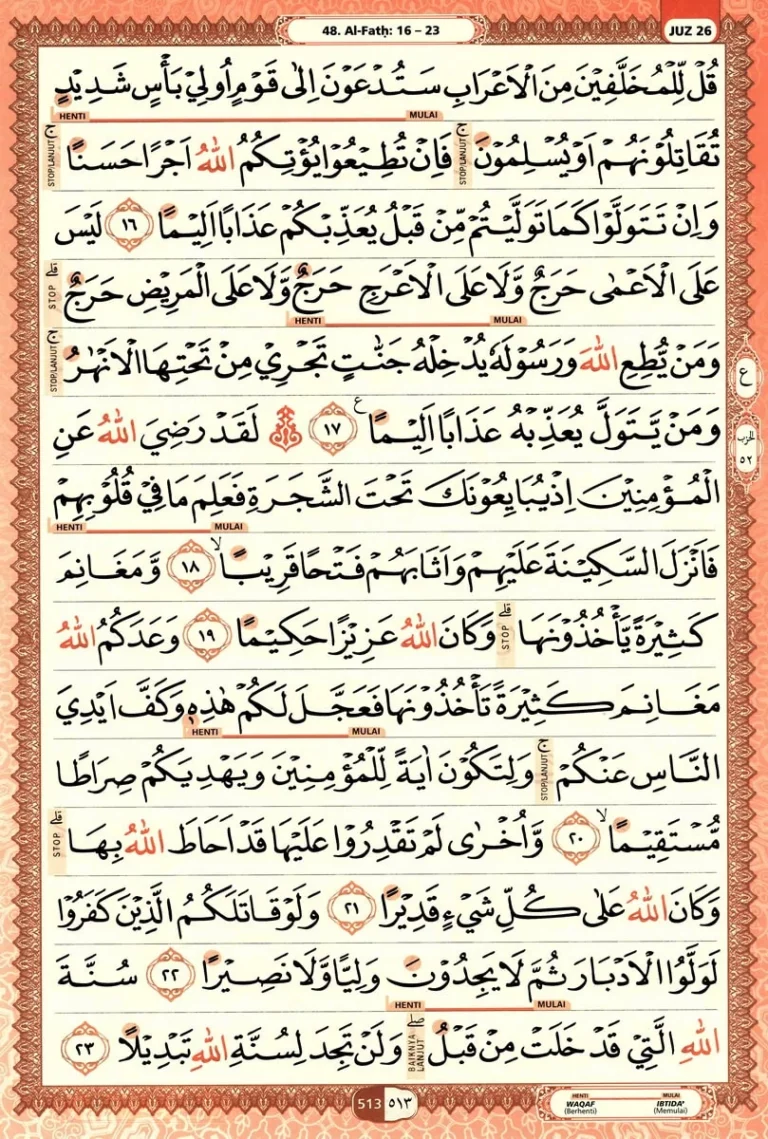 48. Al-Fatḥ: 16 – 23
JUZ 26
قُلْ لِّلْمُخَلَّفِيْنَ مِنَ الْاَعْرَابِ سَتُدْعَوْنَ اِلٰى قَوْمٍ اُولِيْ بَأْسٍ شَدِيْدٍ
HENTI MULAI
تُقَاتِلُوْنَهُمْ اَوْ يُسْلِمُوْنَ ۚ فَاِنْ تُطِيْعُوْا يُؤْتِكُمُ اللّٰهُ اَجْرًا حَسَنًا ۚ
STOP/LANJUT STOP/LANJUT
وَاِنْ تَتَوَلَّوْا كَمَا تَوَلَّيْتُمْ مِّنْ قَبْلُ يُعَذِّبْكُمْ عَذَابًا اَلِيْمًا ١٦ لَيْسَ
عَلَى الْاَعْمٰى حَرَجٌ وَّلَا عَلَى الْاَعْرَجِ حَرَجٌ وَّلَا عَلَى الْمَرِيْضِ حَرَجٌ ۗ
STOP
HENTI MULAI
وَمَنْ يُّطِعِ اللّٰهَ وَرَسُوْلَهٗ يُدْخِلْهُ جَنّٰتٍ تَجْرِيْ مِنْ تَحْتِهَا الْاَنْهٰرُ ۚ
STOP/LANJUT
ع
وَمَنْ يَّتَوَلَّ يُعَذِّبْهُ عَذَابًا اَلِيْمًا ࣖ ١٧ ۞ لَقَدْ رَضِيَ اللّٰهُ عَنِ
الحزب
٥٢
الْمُؤْمِنِيْنَ اِذْ يُبَايِعُوْنَكَ تَحْتَ الشَّجَرَةِ فَعَلِمَ مَا فِيْ قُلُوْبِهِمْ
HENTI MULAI
فَاَنْزَلَ السَّكِيْنَةَ عَلَيْهِمْ وَاَثَابَهُمْ فَتْحًا قَرِيْبًا ۙ ١٨ وَّمَغَانِمَ
كَثِيْرَةً يَّأْخُذُوْنَهَا ۗ وَكَانَ اللّٰهُ عَزِيْزًا حَكِيْمًا ١٩ وَعَدَكُمُ اللّٰهُ
STOP
مَغَانِمَ كَثِيْرَةً تَأْخُذُوْنَهَا فَعَجَّلَ لَكُمْ هٰذِهٖ وَكَفَّ اَيْدِيَ
HENTI MULAI
النَّاسِ عَنْكُمْ ۚ وَلِتَكُوْنَ اٰيَةً لِّلْمُؤْمِنِيْنَ وَيَهْدِيَكُمْ صِرَاطًا
STOP/LANJUT
مُّسْتَقِيْمًا ۙ ٢٠ وَّاُخْرٰى لَمْ تَقْدِرُوْا عَلَيْهَا قَدْ اَحَاطَ اللّٰهُ بِهَا ۗ
STOP
وَكَانَ اللّٰهُ عَلٰى كُلِّ شَيْءٍ قَدِيْرًا ٢١ وَلَوْ قَاتَلَكُمُ الَّذِيْنَ كَفَرُوْا
لَوَلَّوُا الْاَدْبَارَ ثُمَّ لَا يَجِدُوْنَ وَلِيًّا وَّلَا نَصِيْرًا ٢٢ سُنَّةَ
HENTI MULAI
اللّٰهِ الَّتِيْ قَدْ خَلَتْ مِنْ قَبْلُ ۖ وَلَنْ تَجِدَ لِسُنَّةِ اللّٰهِ تَبْدِيْلًا ٢٣
BAIKNYA LANJUT
513 ٥١٣
HENTI MULAI
WAQAF IBTIDA'
(Berhenti) (Memulai)